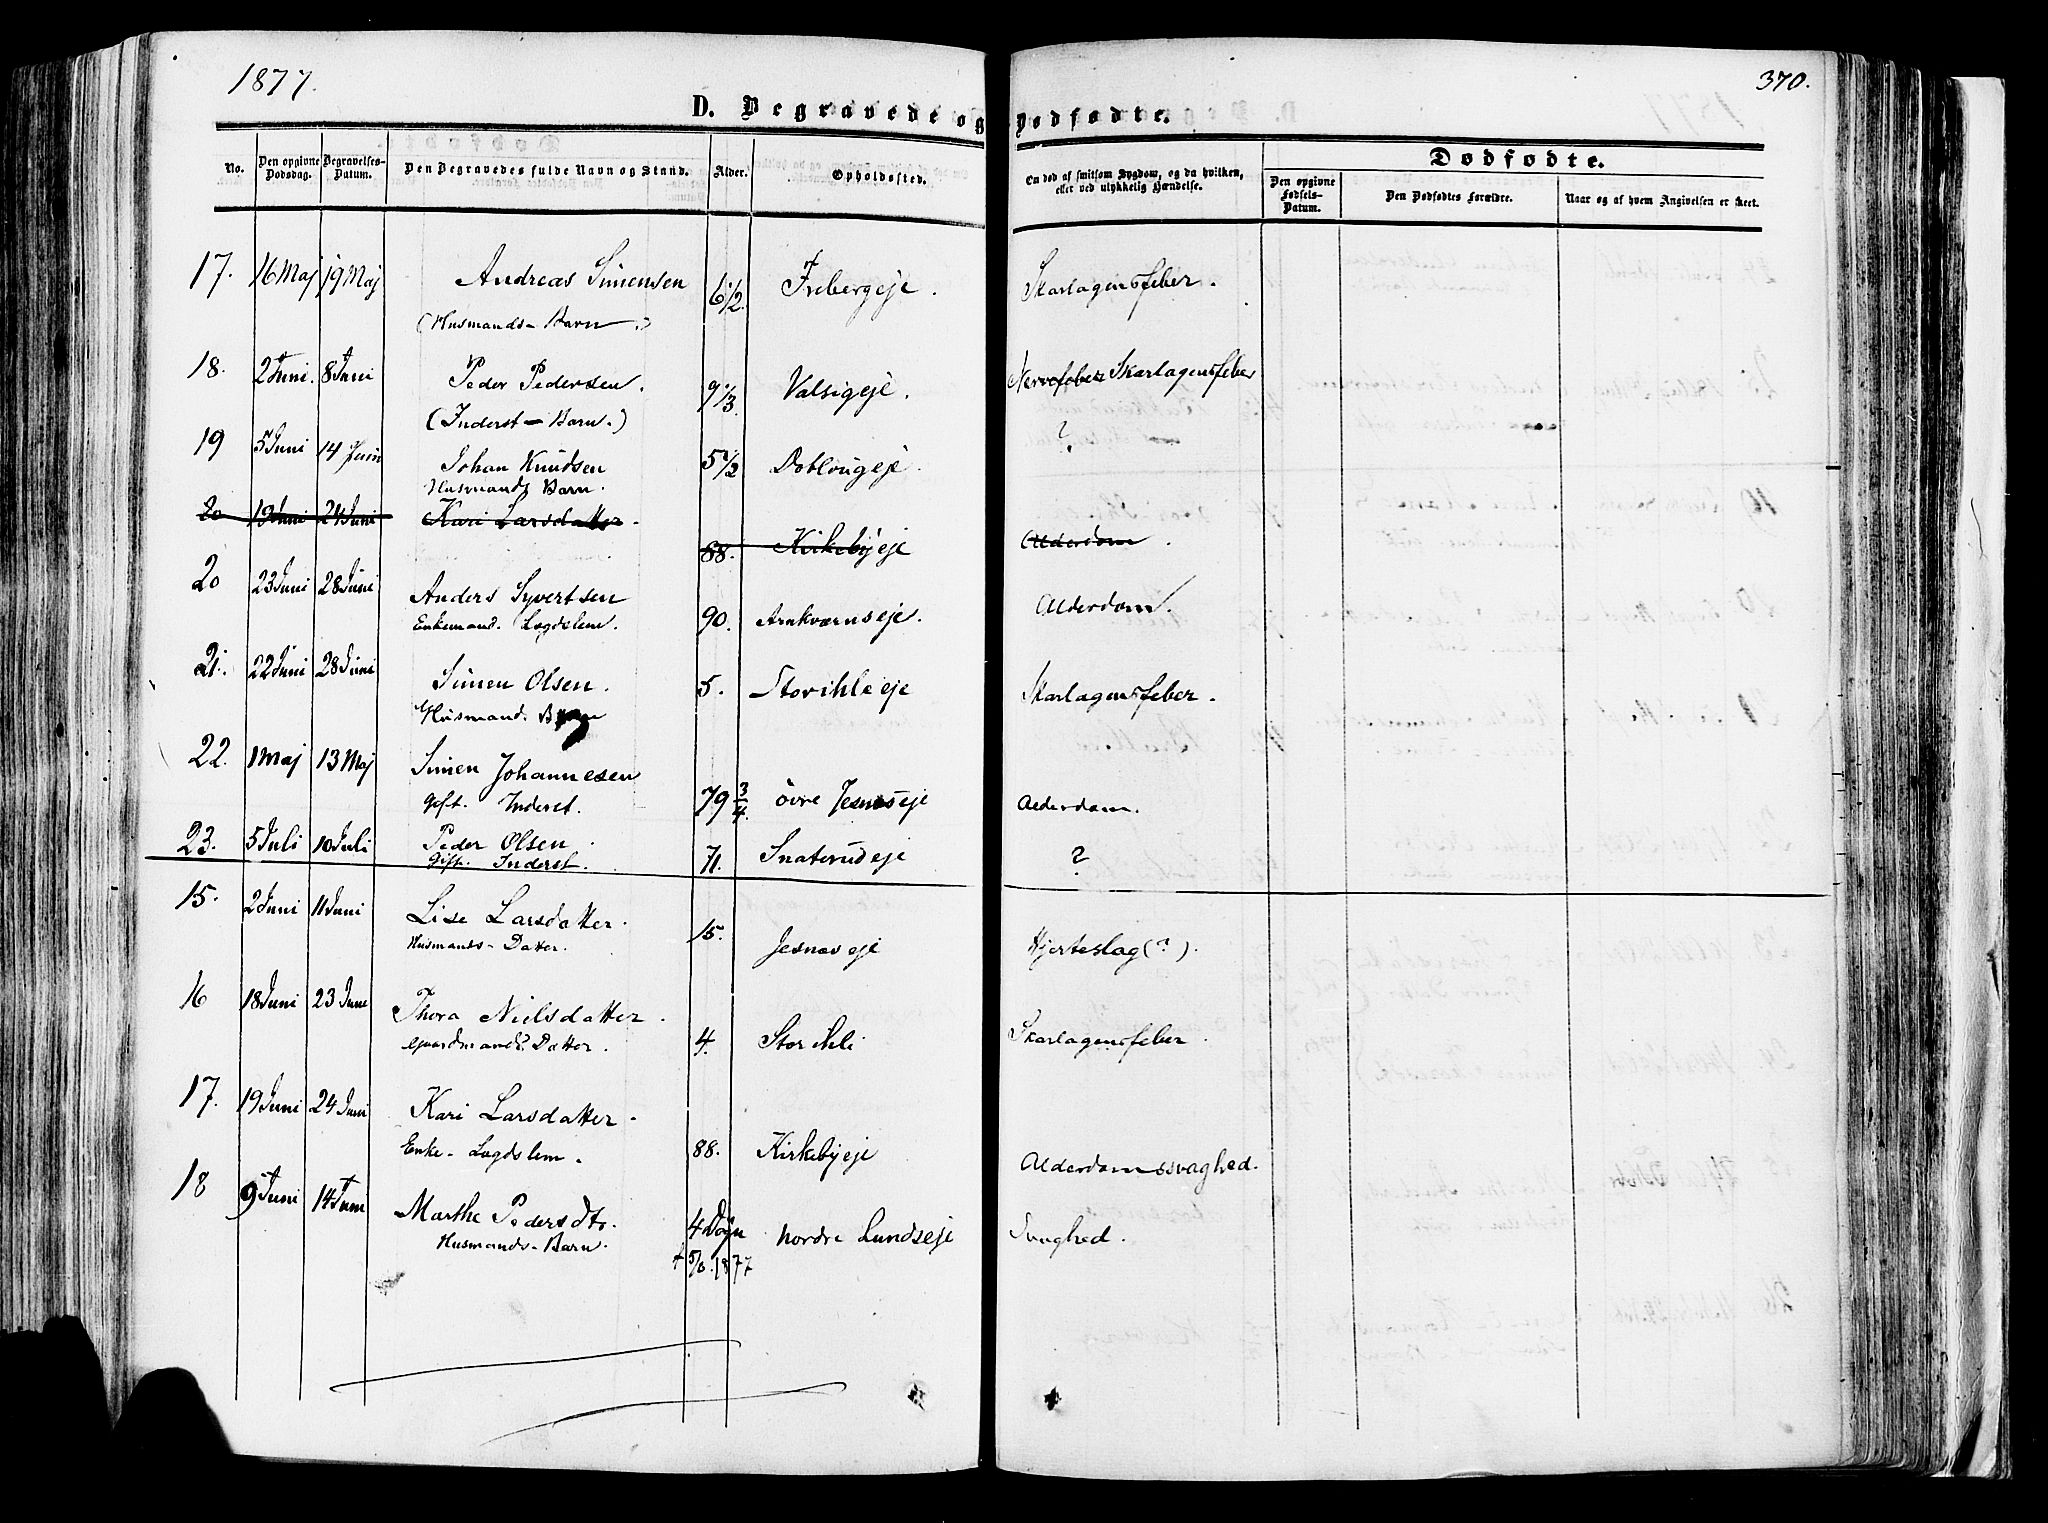 1877.
370.
D. Begravede og Dødfødte.
No.
Den opgivne Dødsdag.
Begravelses-Datum.
Den Begravedes fulde Navn og Stand.
Alder.
Opholdssted.
Om død af smitsom Sygdom, og da hvilken, eller ved ulykkelig Hændelse.
Dødfødte.
Den opgivne Fødsels-Datum.
Den Dødfødtes Forældre.
Naar og af hvem Angivelsen er skeet.
17. 16 Maj 19 Maj Andreas Simensen 6 1/2 Frebergeje. Skarlagensfeber.
(Husmands-Barn.)
18. 2 Juni. 8 Juni Peder Pedersen. 9 1/3. Valsigeje. Nervefeber Skarlagensfeber
(Inderst-Barn.)
19 5 Juni 14 Juni Johan Knudsen 5 1/2 Doblougeje. ?
Husmands Barn.
20 19 Juni 24 Juni Kari Larsdatter. 88. Kirkebyeje Alderdom.
20 23 Juni 28 Juni Anders Syvertsen 90. Arnkværnseje. Alderdom.
Enkemand. Lægdslem.
21. 22 Juni 28 Juni Simen Olsen. 5. Storihleeje Skarlagensfeber.
Husmands Barn
22. 1 Maj 13 Maj Simen Johannesen 79 3/4. övre Jesnæseje Alderdom.
Gift. Inderst.
23. 5 Juli 10 Juli Peder Olsen. 71. Snaterudeje ?
Gift. Inderst.
15. 2 Juni 11 Juni Lise Larsdatter. 15. Jesnæseje Hjerteslag (?).
Husmands-Datter.
16 18 Juni 23 Juni Thora Nielsdatter. 4. Storihli Skarlagensfeber.
Gaardmands Datter.
17. 19 Juni 24 Juni Kari Larsdatter. 88. Kirkebyeje Alderdomssvaghed.
Enke-Lægdslem.
18 9 Juni 14 Juni Marthe Pedersdtr. 4 Døgn nordre Lundseje Svaghed.
Husmands-Barn. f 5/6. 1877